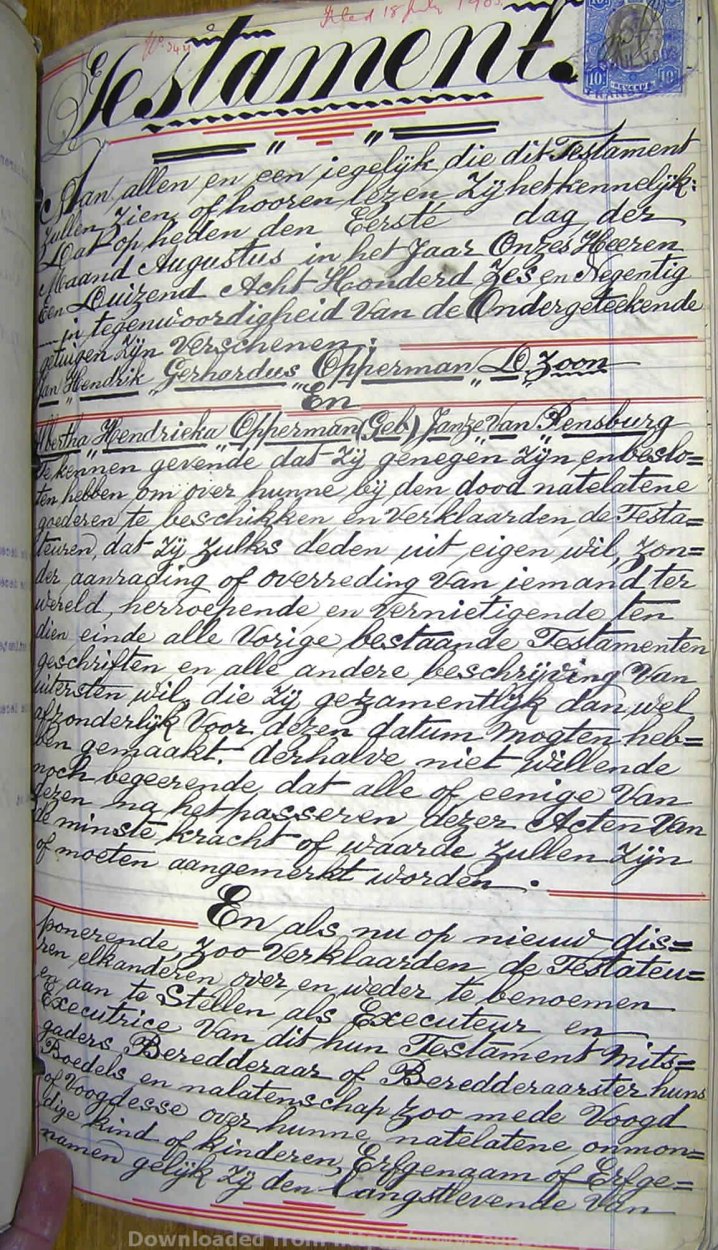 No. 344 Filed 18 July 1903
Testament.
Aan allen en een iegelijk die dit Testament
zullen zien of hooren lezen Zij het kennelijk:
Dat op heden den Eerste dag der
Maand Augustus in het Jaar Onzes Heeren
Een Duizend Acht Honderd Zes en Negentig
in tegenwoordigheid van de Ondergeteekende
getuigen zijn verschenen:
Jan Hendrik Gerhardus Opperman D. zoon
En
Albertha Hendrieka Opperman (Geb) Janze van Rensburg
Te kennen gevende dat zij genegen zijn en beslo=
ten hebben om over hunne bij den dood natelatene
goederen te beschikken en verklaarden de Testa=
teuren, dat zij zulks deden uit eigen wil, zon=
der aanrading of overreding van iemand ter
wereld, herroepende en vernietigende ten
dien einde alle vorige bestaande Testamenten
geschriften en alle andere beschrijving van
uitersten wil, die zij gezamentlijk dan wel
afzonderlijk voor dezen datum mogten heb=
ben gemaakt. derhalve niet willende
noch begeerende dat alle of eenige van
dezen na het passeren dezer Acten van
de minste kracht of waarde zullen zijn
of moeten aangemerkt worden.
En als nu op nieuw dis=
ponerende, zoo verklaarden de Testateu=
ren elkanderen over en weder te benoemen
en aan te Stellen als Executeur en
Executrice van dit hun Testament mits=
gaders Beredderaar of Beredderaarster huns
Boedels en nalatenschap zoo mede Voogd
of Voogdesse over hunne natelatene onmon=
dige kind of kinderen, Erfgenaam of Erfge=
namen gelijk zij den Langstlevende van
Downloaded from http://www.